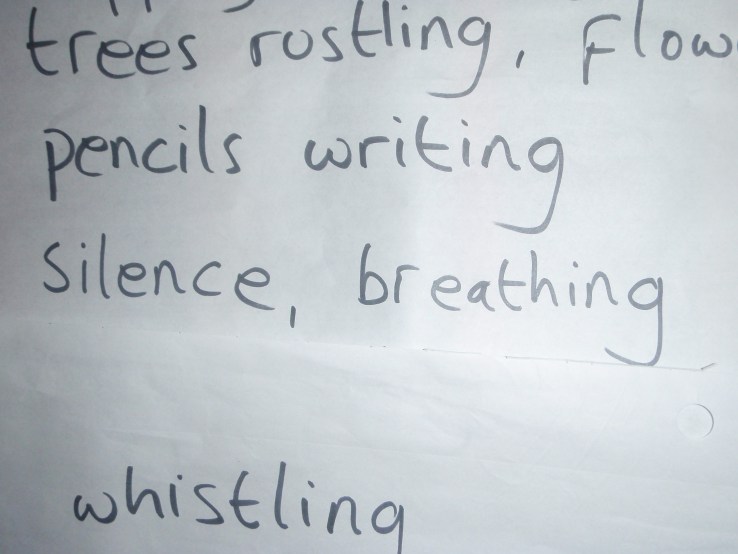 trees rustling, flow
pencils writing
silence, breathing
whistling